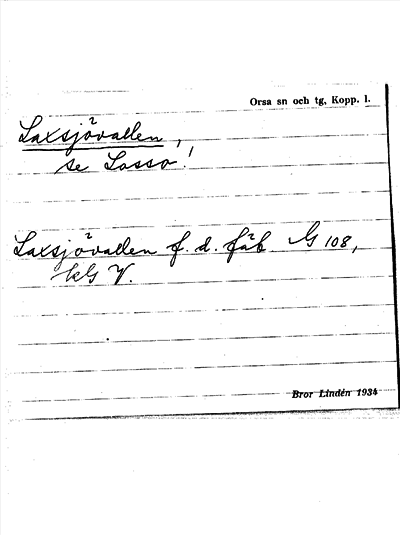 Orsa sn och tg, Kopp. l.
Laxsjövallen,
se Lasso!
Laxsjövallen f. d. fäb G 108,
kG V.
Bror Lindén 1934